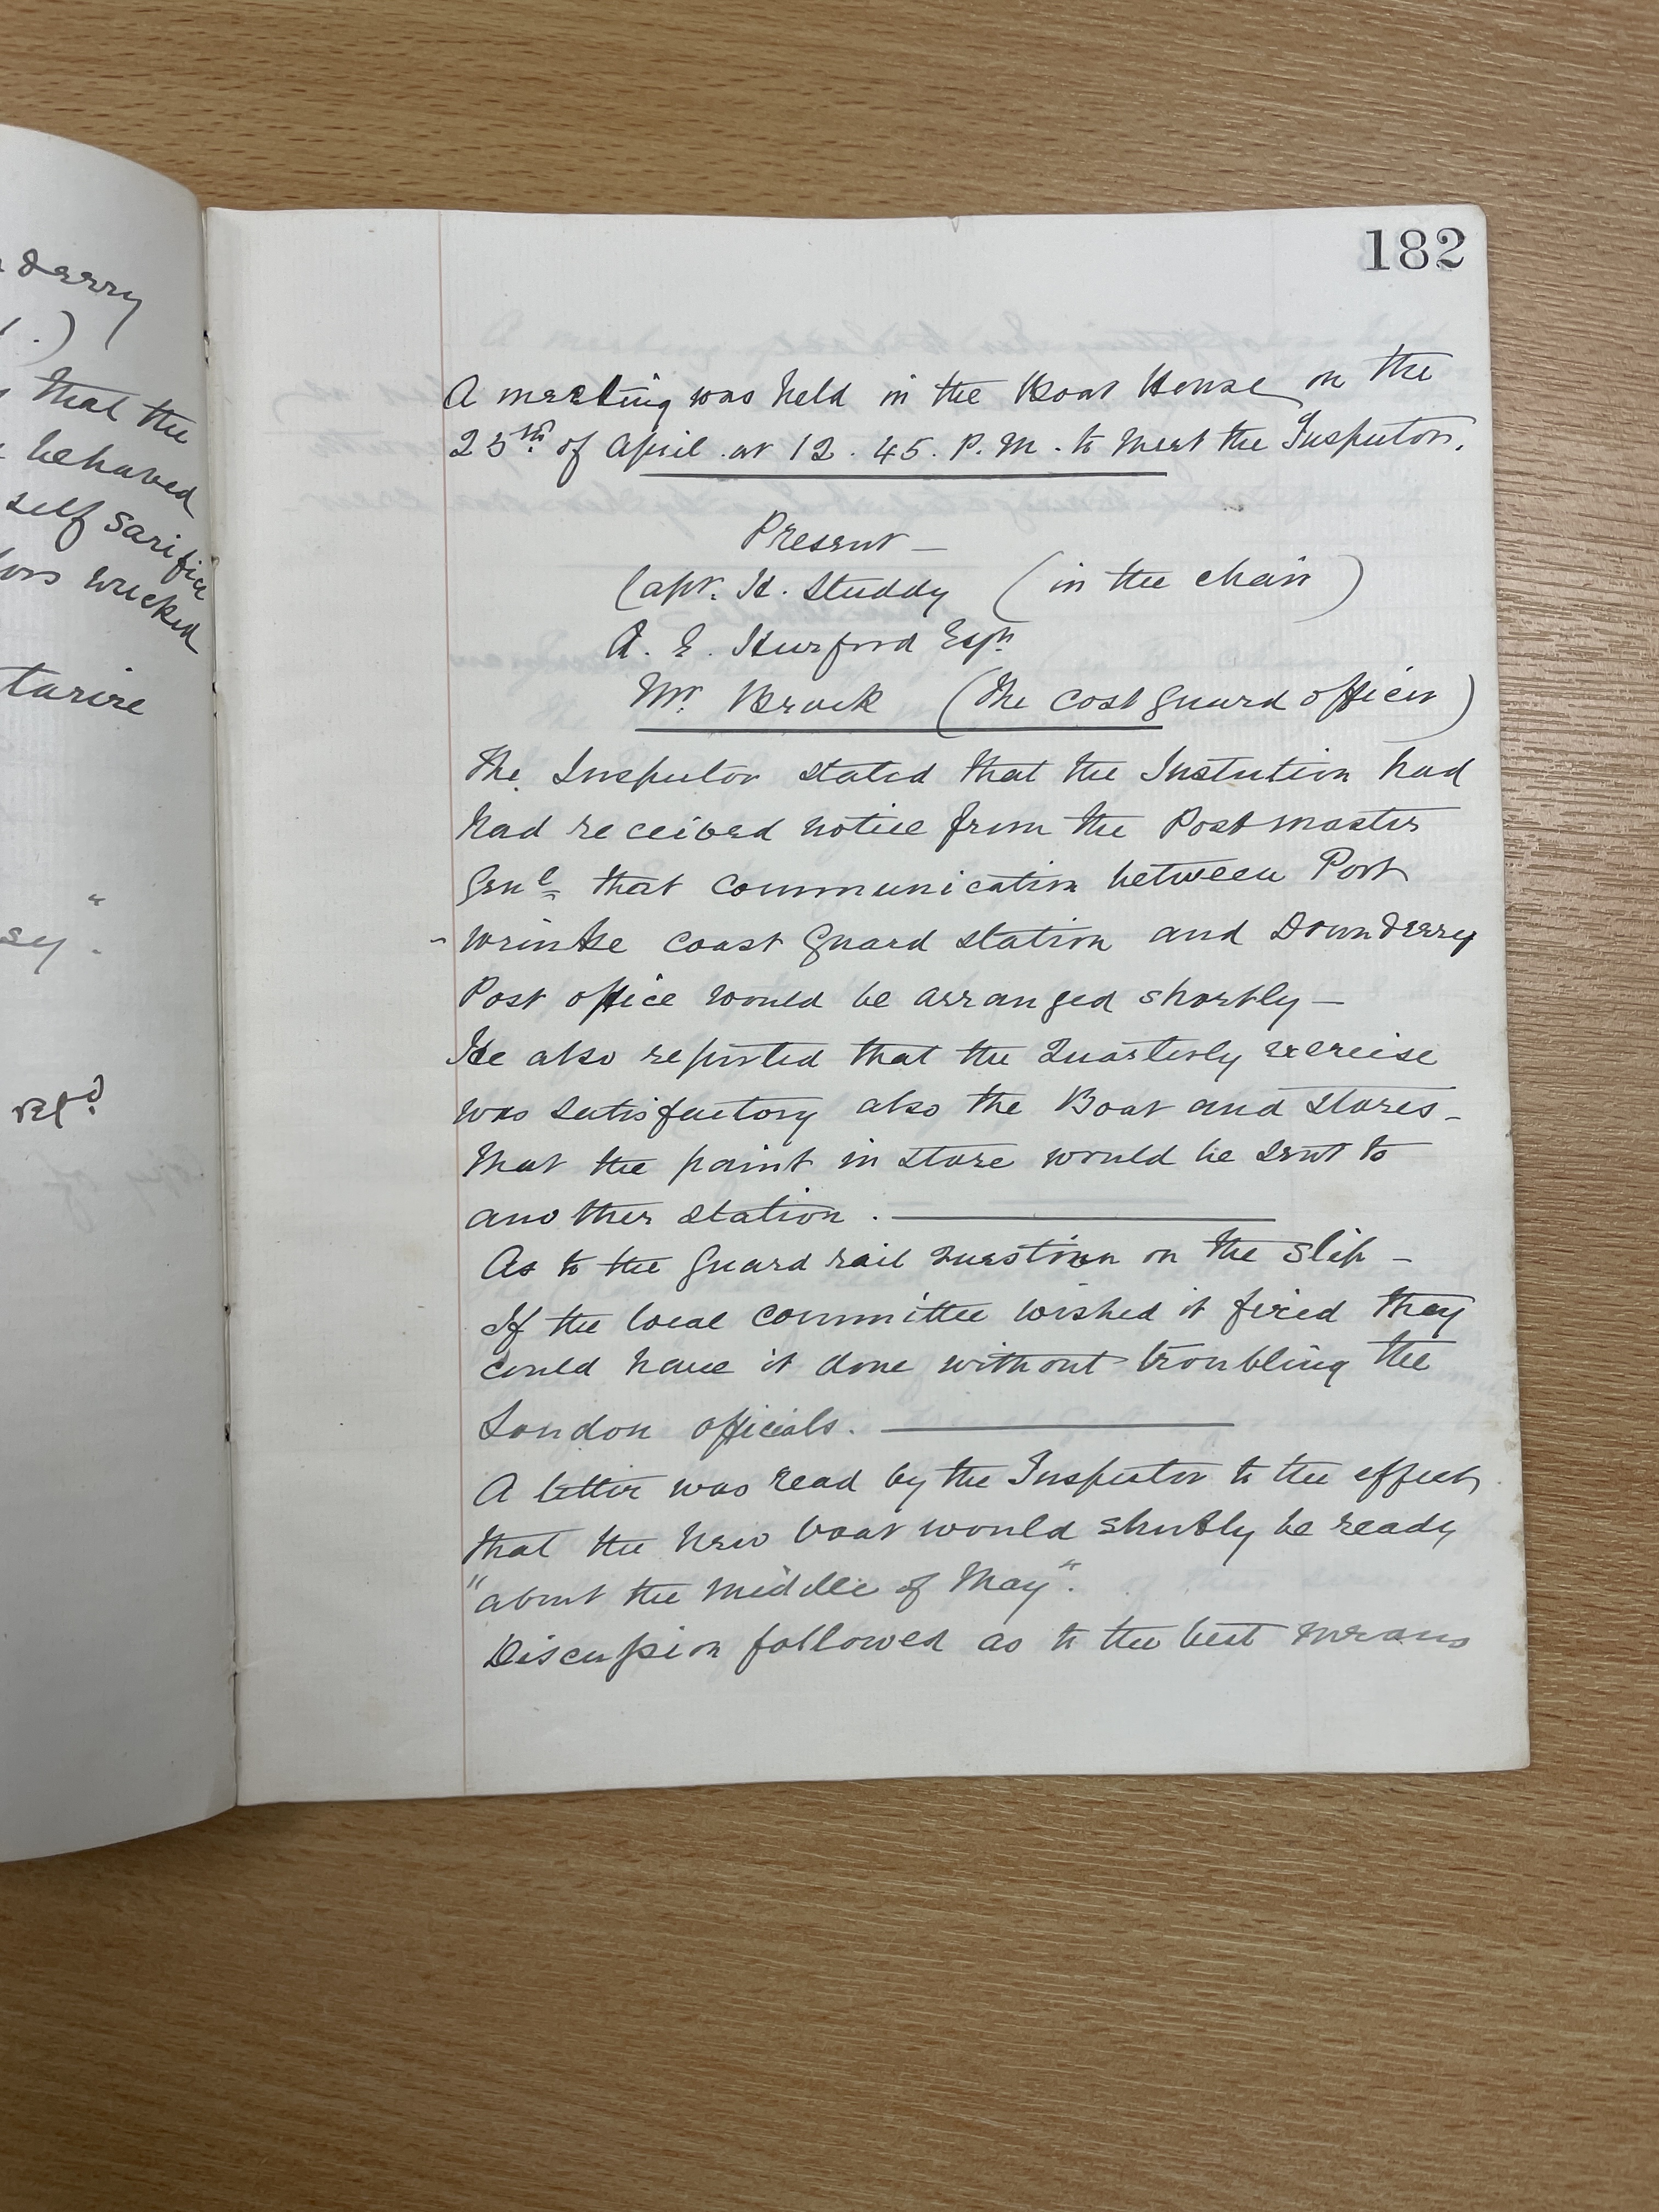 derry
.)
that the
behaved
self sarifice
wrecked
"
sey".
182
A meeting was held in the Boat House on the
25th of April at 12.45. P.M. to meet the Inspector.
Present —
Capt. H. Studdy (in the chair)
A. E. Hurford Esqr
Mr. Brock (the cost guard officer)
The Inspector stated that the Instution had
had received notice from the Postmaster
Genl that communication between Port
-wrinkle coast guard station and Downderry
Post office would be arranged shortly —
He also reported that the Quarterly exercise
was satisfactory also the Boat and stores -
that the paint in store would be sent to
another station. —
As to the guard rail question on the slip -
If the local committee wished it fixed they
could have it done without troubling the
London officials. —
A letter was read by the Inspector to the effect
that the new boat would shortly be ready
"about the middle of May".
Discussion followed as to the best means